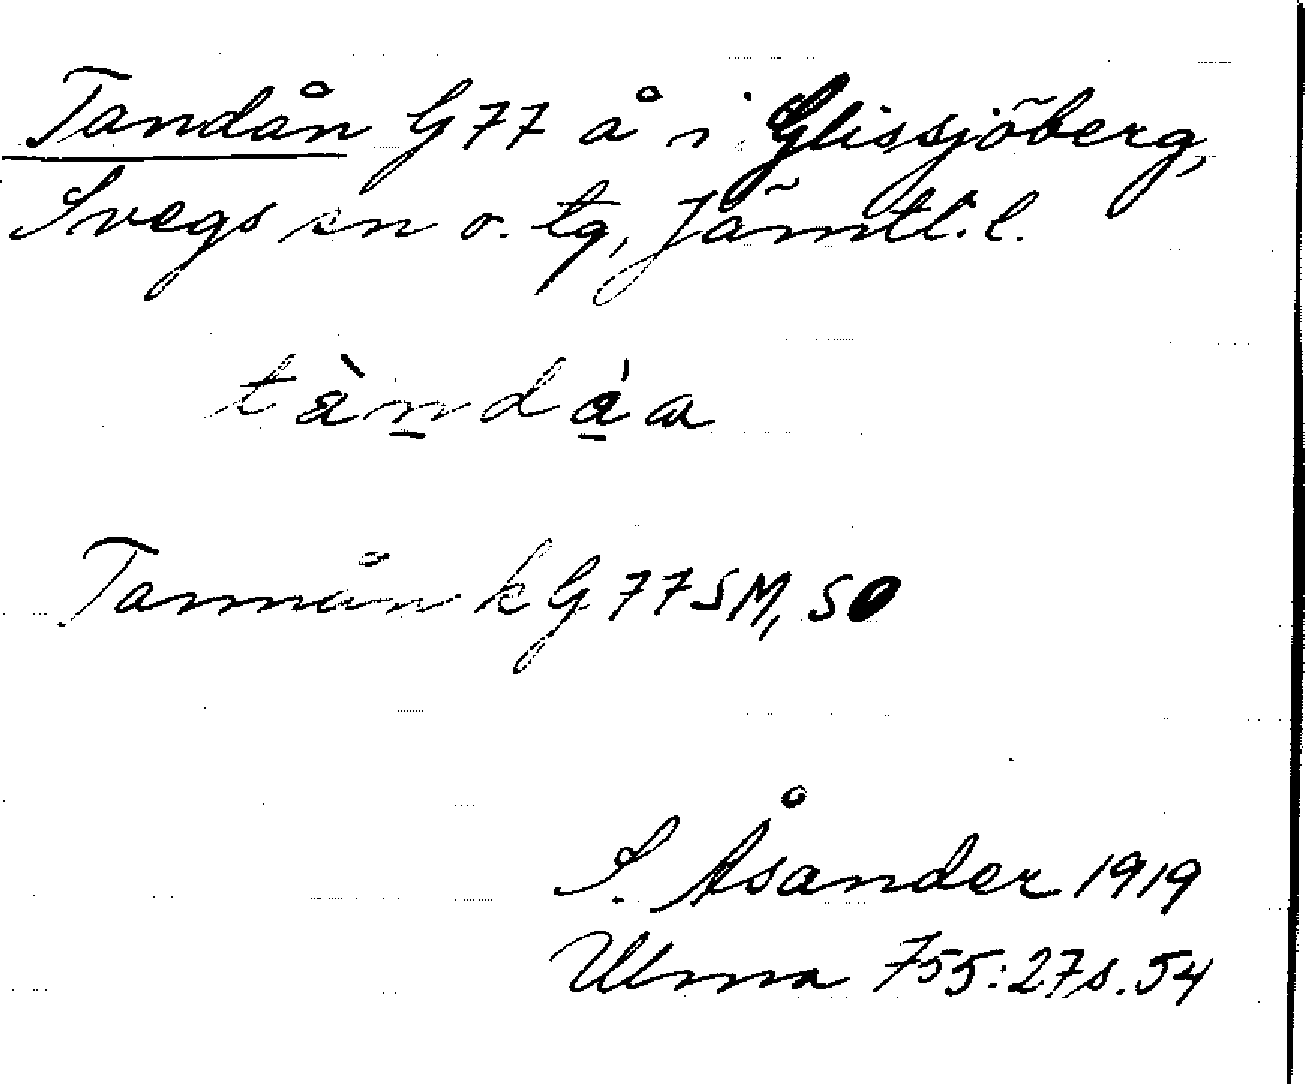 Tandån G 77 å i Glissjöberg,
Svegs sn o. tg, Jämtl. l.
tàndáa
Tannån k G 77 SM, SO
S. Åsander 1919
Ulma 755:27 s. 54